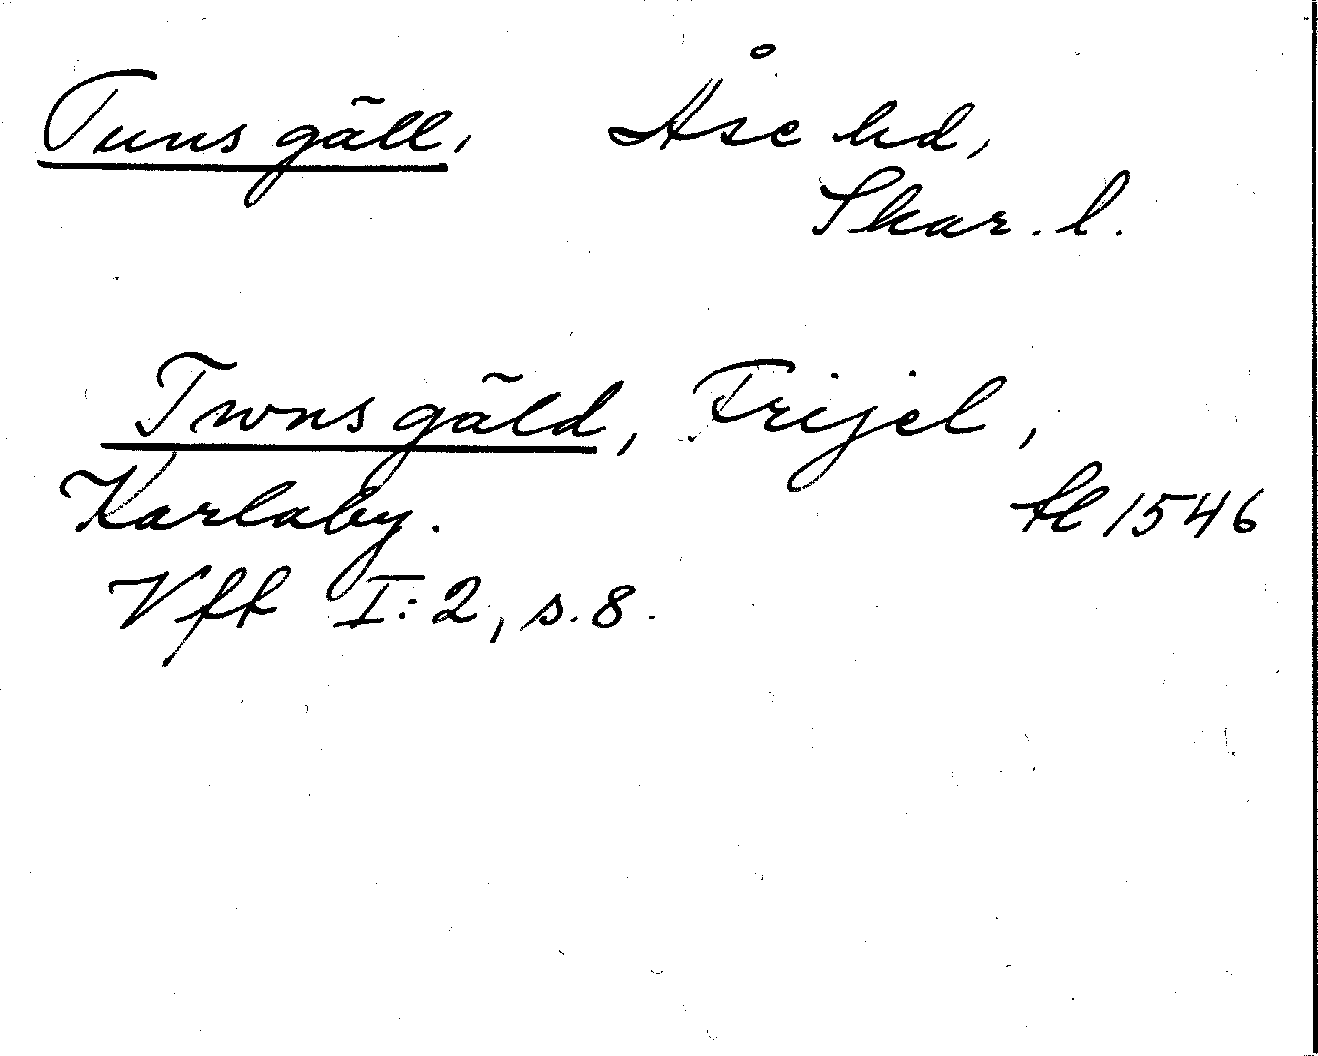 Tuns gäll, Åse hd,
Skar. l.
Twns gäld, Frijel,
Karlaby. tl 1546
Vff I:2, s. 8.